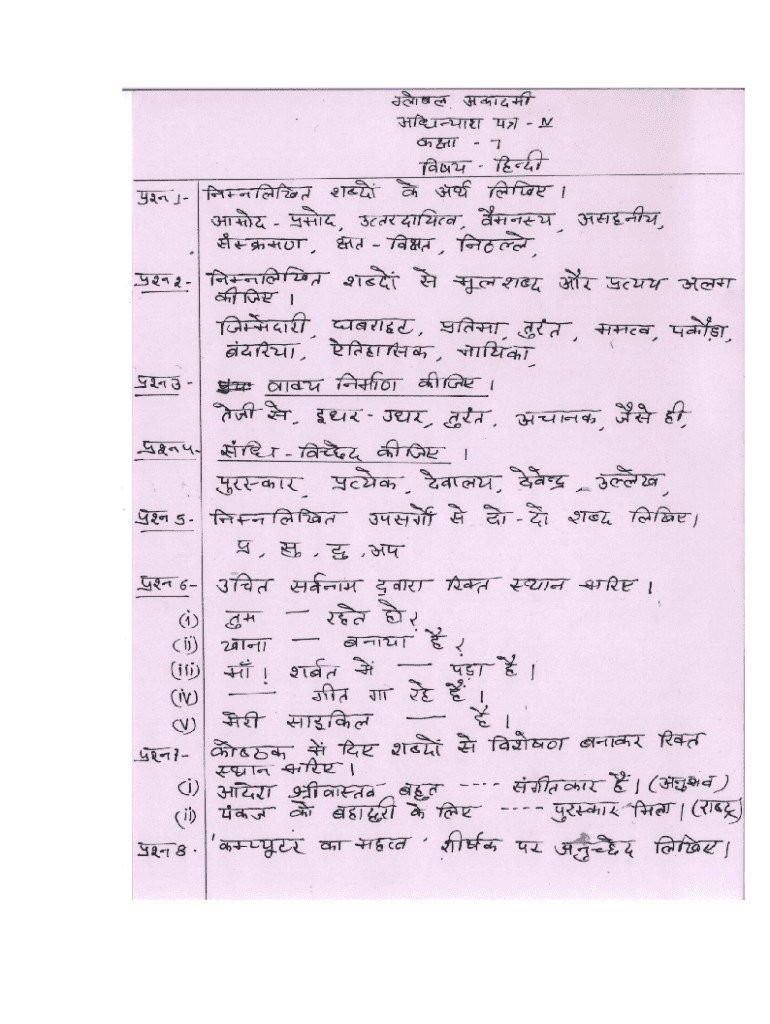 ग्लोबल अकादमी
अधिन्याश पत्र - IV
कक्षा - 7
विषय - हिन्दी
प्रश्न 1- निम्नलिखित शब्दों के अर्थ लिखिए।
आमोद - प्रमोद, उत्तरदायित्व, वैमनस्य, असहनीय,
संस्क्रमण, क्षत - विक्षत, निठल्ले,
प्रश्न 2- निम्नलिखित शब्दों से मूलशब्द और प्रत्यय अलग
कीजिए।
जिम्मेदारी, घबराहट, प्रतिमा, तुरंत, ममत्व, पकौड़ा,
बंदरिया, ऐतिहासिक, नायिका,
प्रश्न 3 - वाक्य निर्माण कीजिए।
तेजी से, इधर - उधर, तुरंत, अचानक, जैसे ही,
प्रश्न 4- संधि - विच्छेद कीजिए।
पुरस्कार, प्रत्येक, देवालय, देवेन्द्र, उल्लेख,
प्रश्न 5- निम्नलिखित उपसर्गों से दो - दो शब्द लिखिए।
प्र, सु, दु, अप
प्रश्न 6- उचित सर्वनाम द्वारा रिक्त स्थान भरिए।
(i) तुम — रहते हो?
(ii) खाना — बनाया है?
(iii) माँ! शर्बत में — पड़ा है।
(iv) — गीत गा रहे हैं।
(v) मेरी साइकिल — है।
प्रश्न 7- कोष्ठक में दिए शब्दों से विशेषण बनाकर रिक्त
स्थान भरिए।
(i) आदेश श्रीवास्तव बहुत ---- संगीतकार हैं। (अनुभव)
(ii) पंकज को बहादुरी के लिए ---- पुरस्कार मिला। (राष्ट्र)
प्रश्न 8- 'कम्प्यूटर का महत्व' शीर्षक पर अनुच्छेद लिखिए।